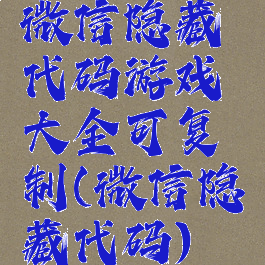 微信隐藏
代码游戏
大全可复
制(微信隐
藏代码)